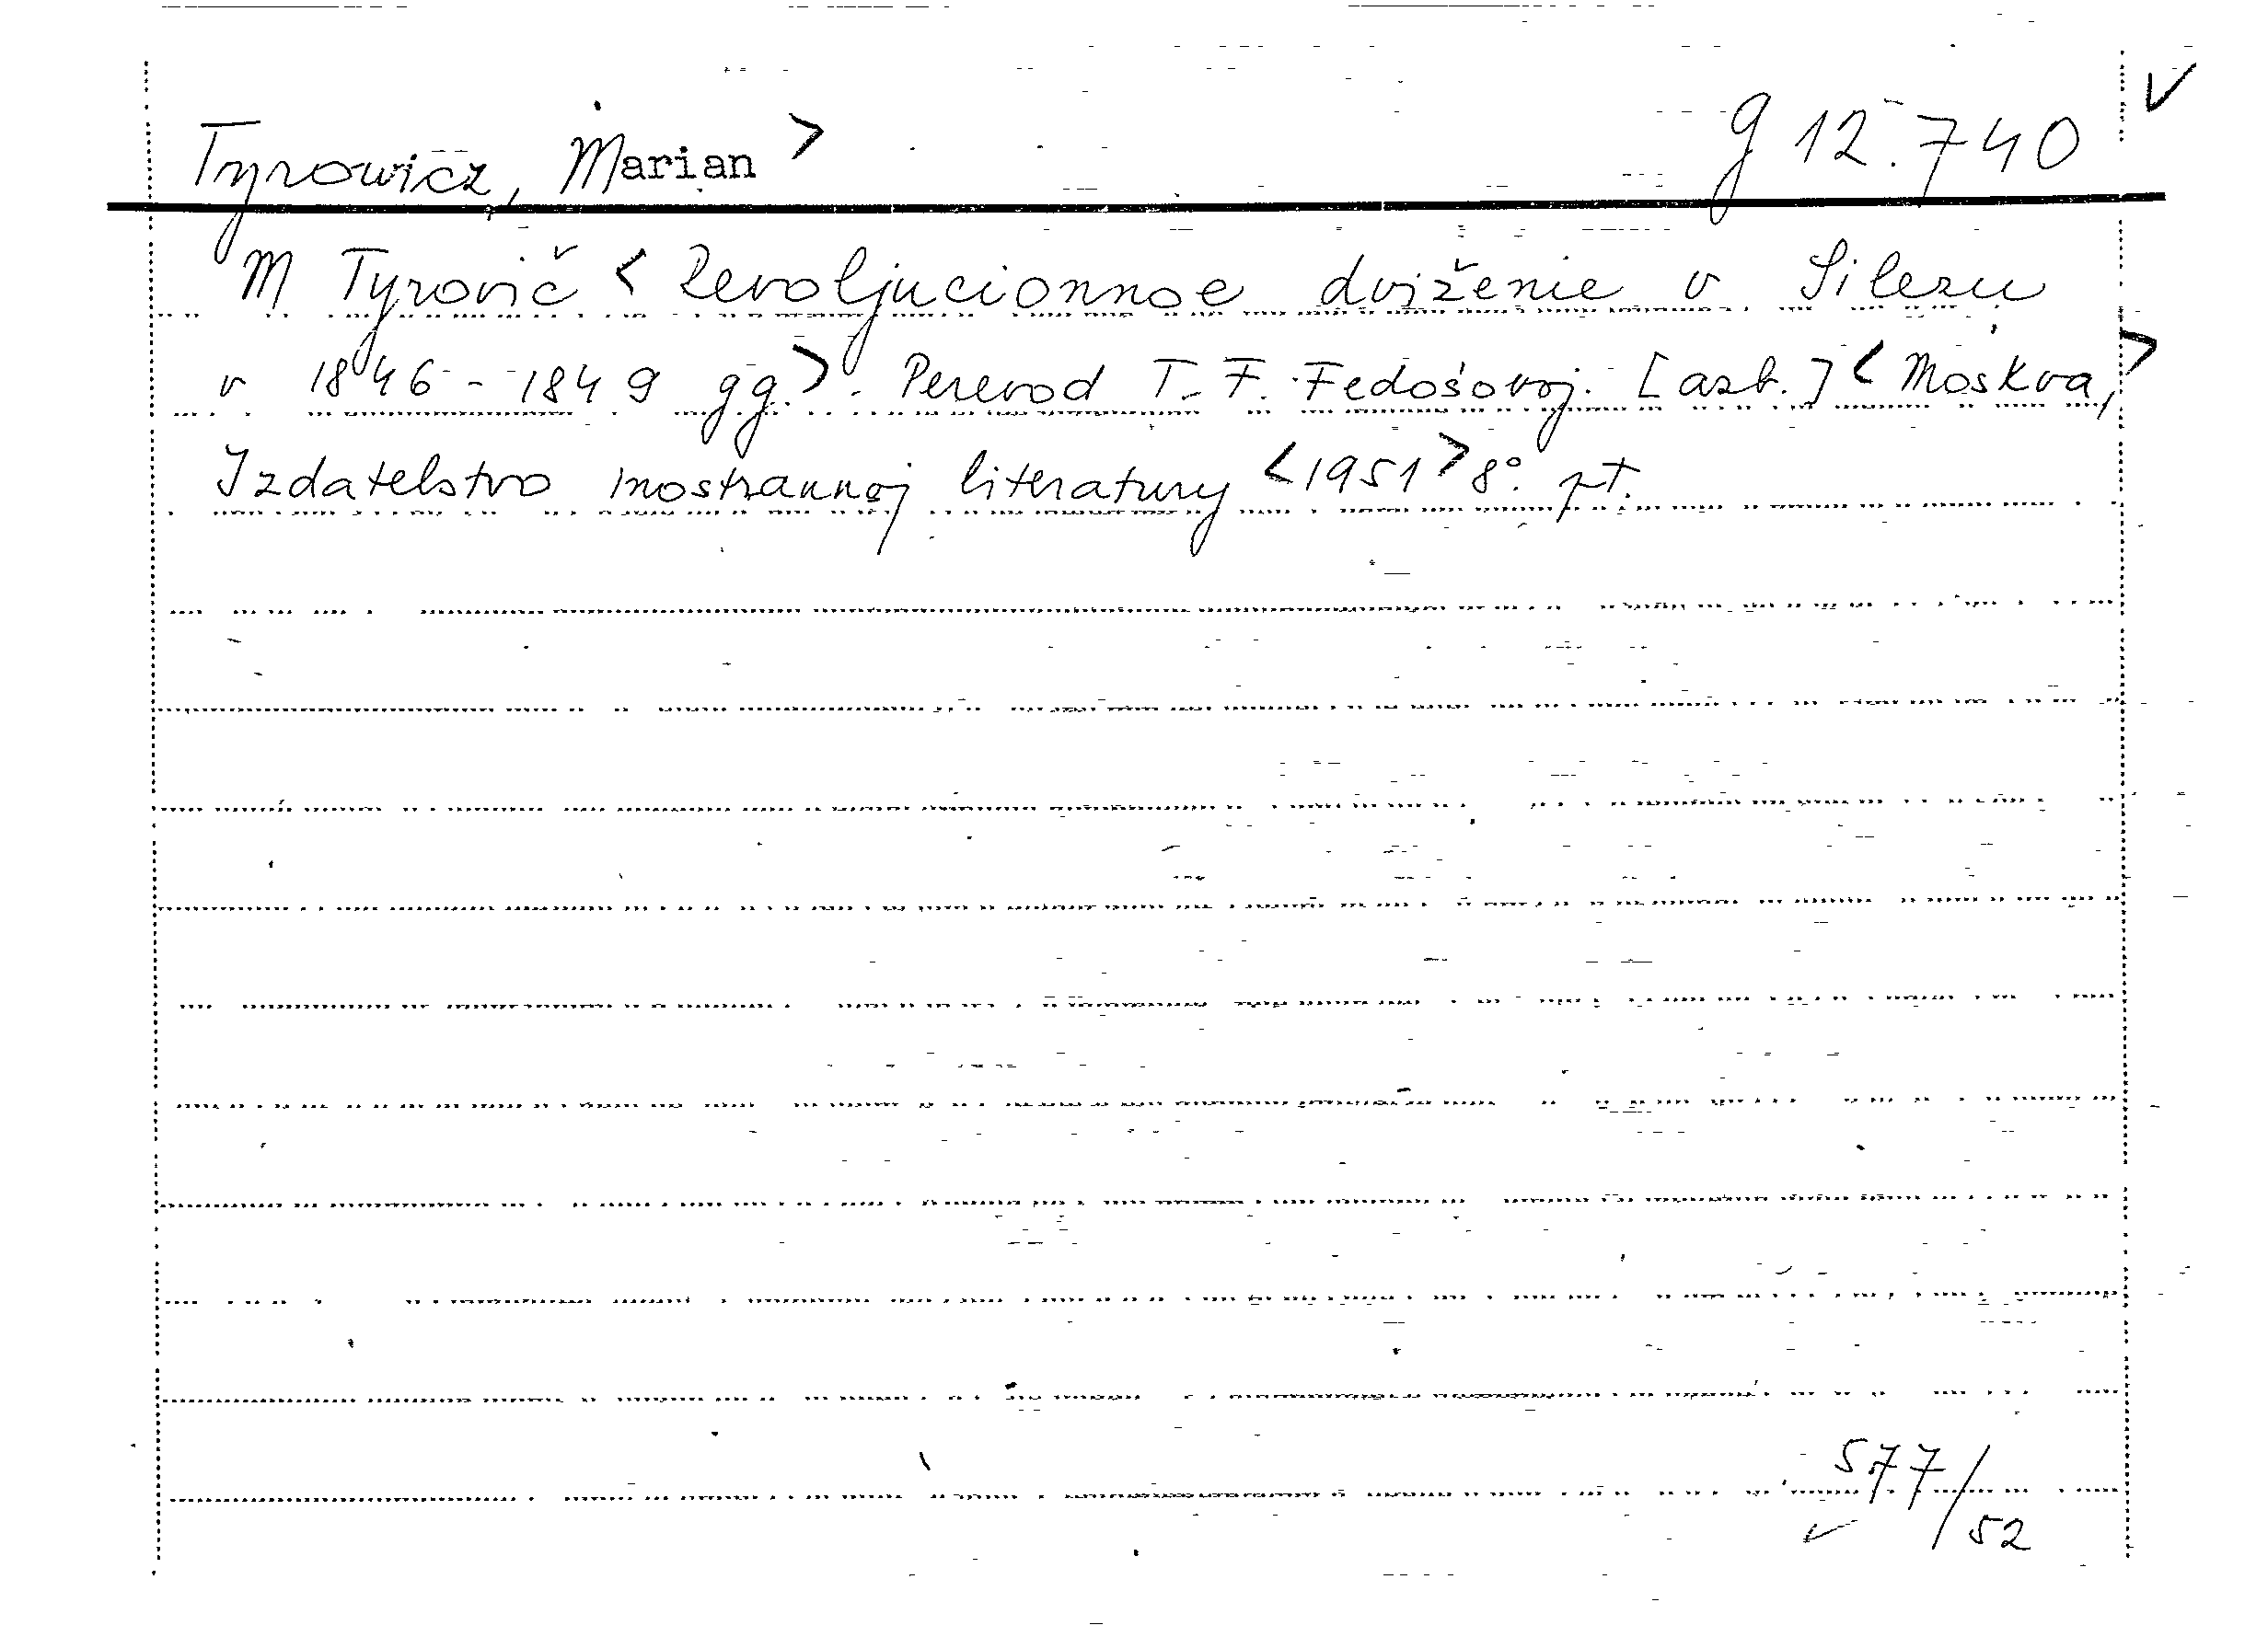 Tyrowicz, Marian > g 12.740
M Tyrovič < Revoljucionnoe dviženie v Silezii
v 1846-1849 gg.>. Perevod T. F. Fedošovoj. [azb.] < Moskva, >
Izdatelstvo inostrannoj literatury < 1951 > 8°. pt.
577/52